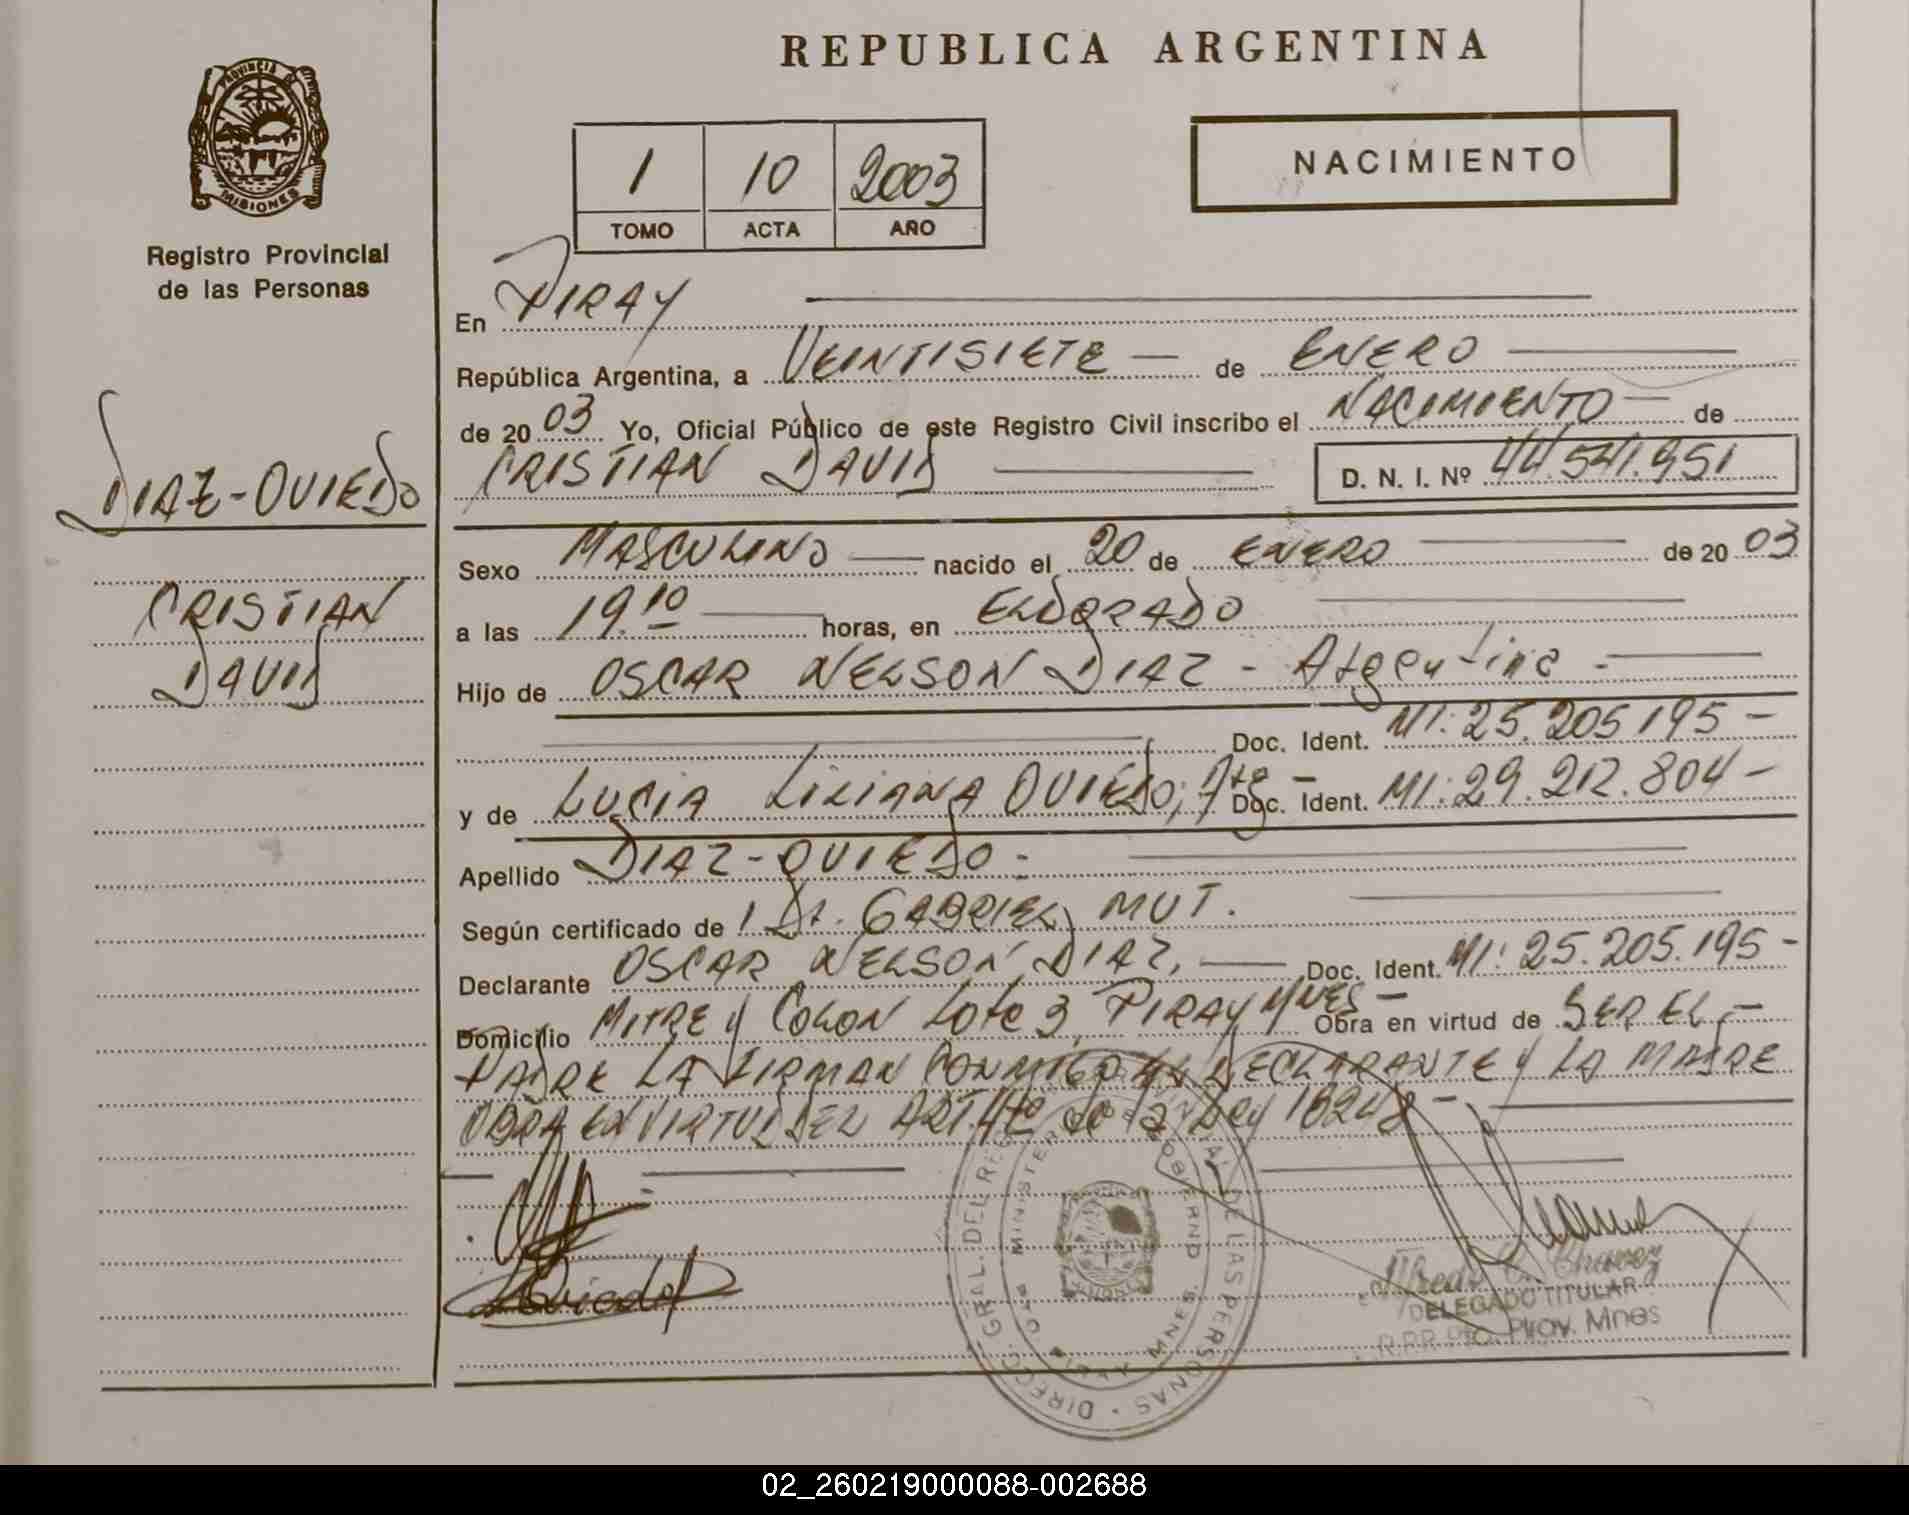 REPUBLICA ARGENTINA
PROVINCIA DE
MISIONES
Registro Provincial
de las Personas
1 10 2003
TOMO ACTA AÑO
NACIMIENTO
En PIRAY
República Argentina, a VEINTISIETE de ENERO
de 2003 Yo, Oficial Público de este Registro Civil inscribo el NACIMIENTO de
CRISTIAN DAVID D. N. I. Nº 44.541.951
DIAZ-OVIEDO
CRISTIAN
DAVID
Sexo MASCULINO nacido el 20 de ENERO de 2003
a las 19.10 horas, en ELDORADO
Hijo de OSCAR NELSON DIAZ - Argentino -
Doc. Ident. MI: 25.205.195-
y de LUCIA LILIANA OVIEDO, Arg - Doc. Ident. MI: 29.212.804-
Apellido DIAZ-OVIEDO-
Según certificado de Dr. GABRIEL MUT.
Declarante OSCAR NELSON DIAZ, Doc. Ident. MI: 25.205.195-
Domicilio MITRE y COLON Lote 3 PIRAY MNES- Obra en virtud de SER EL-
PADRE LA FIRMAN CONMIGO EL DECLARANTE y LA MADRE
OBRA EN VIRTUD DEL ART. de la Ley 18248-
Oviedo
DIRECC. GRAL. DEL REG. PROVINCIAL DE LAS PERSONAS
MINISTERIO GOBIERNO
PTO. PIRAY MNES.
Alfredo C. Chavez
DELEGADO TITULAR
R.P.P. PTO. Piray. Mnes
02_260219000088-002688